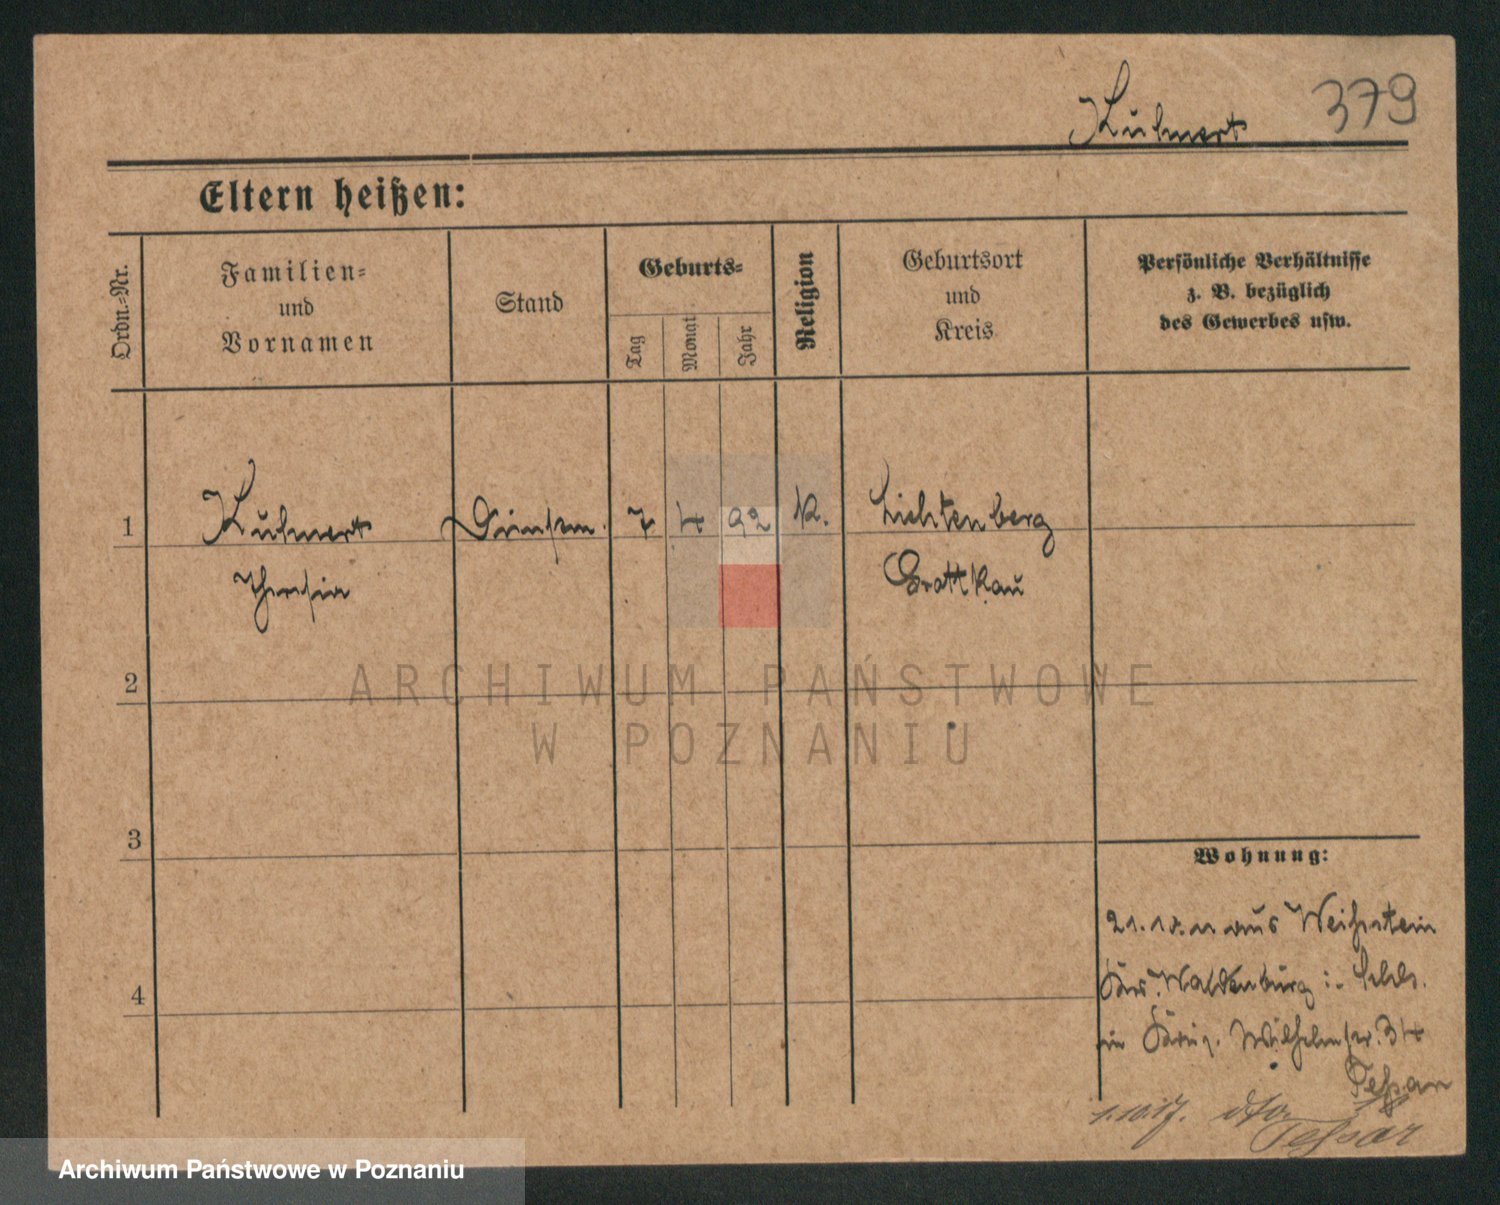 Kuhnert 379
Eltern heißen:
Ordn.-Nr.
Familien-
und
Vornamen
Stand
Geburts-
Tag
Monat
Jahr
Religion
Geburtsort
und
Kreis
Persönliche Verhältnisse
z. B. bezüglich
des Gewerbes usw.
1 Kuhnert 7 4 92 K. Lichtenberg
Grottkau
2
3
4
Wohnung:
21. aus Weißstein
Waldenburg i. Schles.
Wilhelmstr. 34
Teßar
dto.
Teßar
ARCHIWUM PAŃSTWOWE
W POZNANIU
Archiwum Państwowe w Poznaniu